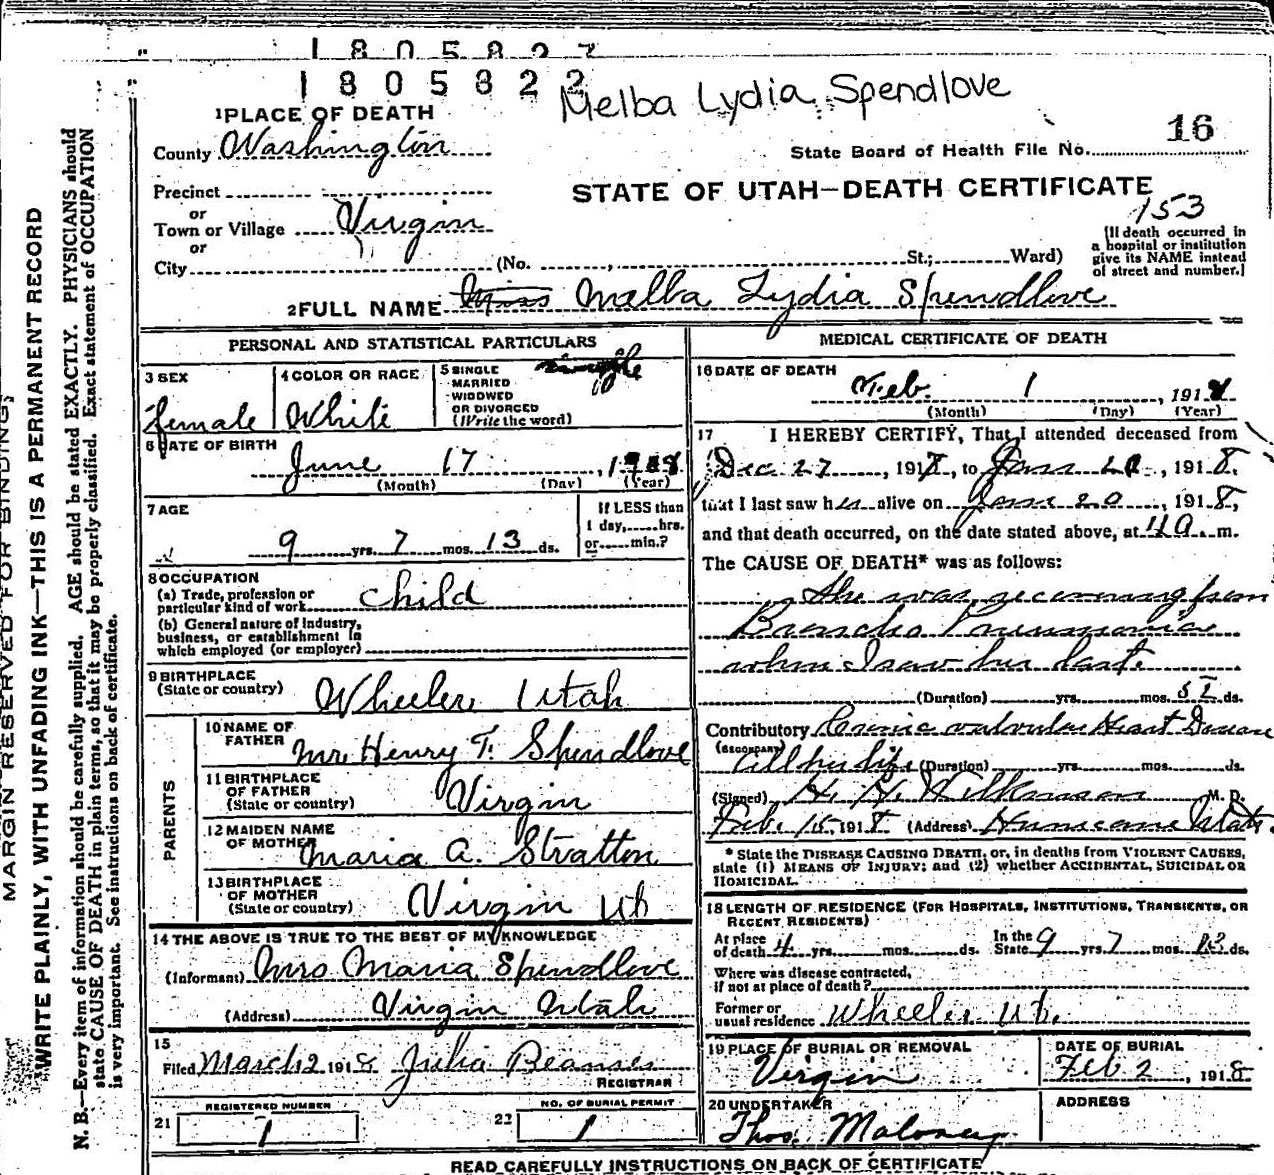 1805822
1805822
Melba Lydia Spendlove
1 PLACE OF DEATH
16
County Washington
State Board of Health File No.
Precinct
STATE OF UTAH—DEATH CERTIFICATE
or
153
Town or Village Virgin
or
[If death occurred in
a hospital or institution
give its NAME instead
of street and number.]
City (No. , St.; Ward)
2 FULL NAME Miss Melba Lydia Spendlove
PERSONAL AND STATISTICAL PARTICULARS
3 SEX
female
4 COLOR OR RACE
White
5 SINGLE
MARRIED
WIDOWED
OR DIVORCED
(Write the word)
single
6 DATE OF BIRTH
June 17, 1908
(Month) (Day) (Year)
7 AGE
9 yrs. 7 mos. 13 ds.
If LESS than
1 day, hrs.
or min.?
8 OCCUPATION
(a) Trade, profession or
particular kind of work child
(b) General nature of industry,
business, or establishment in
which employed (or employer)
9 BIRTHPLACE
(State or country) Wheeler Utah
PARENTS
10 NAME OF
FATHER Mr. Henry T. Spendlove
11 BIRTHPLACE
OF FATHER
(State or country) Virgin
12 MAIDEN NAME
OF MOTHER Maria A. Stratton
13 BIRTHPLACE
OF MOTHER
(State or country) Virgin Ut
14 THE ABOVE IS TRUE TO THE BEST OF MY KNOWLEDGE
(Informant) Mrs Maria Spendlove
(Address) Virgin Utah
15
Filed March 2 1918 Julia
REGISTRAR
REGISTERED NUMBER
21 1
NO. OF BURIAL PERMIT
22 1
MEDICAL CERTIFICATE OF DEATH
16 DATE OF DEATH
Feb. 1, 1918
(Month) (Day) (Year)
17 I HEREBY CERTIFY, That I attended deceased from
Dec 27, 1917, to Jan 20, 1918,
that I last saw her alive on Jan 20, 1918,
and that death occurred, on the date stated above, at 4 a. m.
The CAUSE OF DEATH* was as follows:
She was recovering from
Broncho Pneumonia
when I saw her last.
(Duration) yrs. mos. ds.
Contributory Cronic valvular Heart Disease
(SECONDARY)
all her life (Duration) yrs. mos. ds.
(Signed) H. H. Wilkinson M. D.
Feb. 15, 1918 (Address) Hurricane Utah.
* State the DISEASE CAUSING DEATH, or, in deaths from VIOLENT CAUSES,
state (1) MEANS OF INJURY; and (2) whether ACCIDENTAL, SUICIDAL OR
HOMICIDAL.
18 LENGTH OF RESIDENCE (FOR HOSPITALS, INSTITUTIONS, TRANSIENTS, OR
RECENT RESIDENTS)
At place
of death 4 yrs. mos. ds.
In the
State 9 yrs. 7 mos. 13 ds.
Where was disease contracted,
if not at place of death?
Former or
usual residence Wheeler Ut.
19 PLACE OF BURIAL OR REMOVAL
Virgin
DATE OF BURIAL
Feb 2, 1918
20 UNDERTAKER
Thos. Maloney
ADDRESS
READ CAREFULLY INSTRUCTIONS ON BACK OF CERTIFICATE
MARGIN RESERVED FOR BINDING,
WRITE PLAINLY, WITH UNFADING INK—THIS IS A PERMANENT RECORD
N. B.—Every item of information should be carefully supplied. AGE should be stated EXACTLY. PHYSICIANS should
state CAUSE OF DEATH in plain terms, so that it may be properly classified. Exact statement of OCCUPATION
is very important. See instructions on back of certificate.